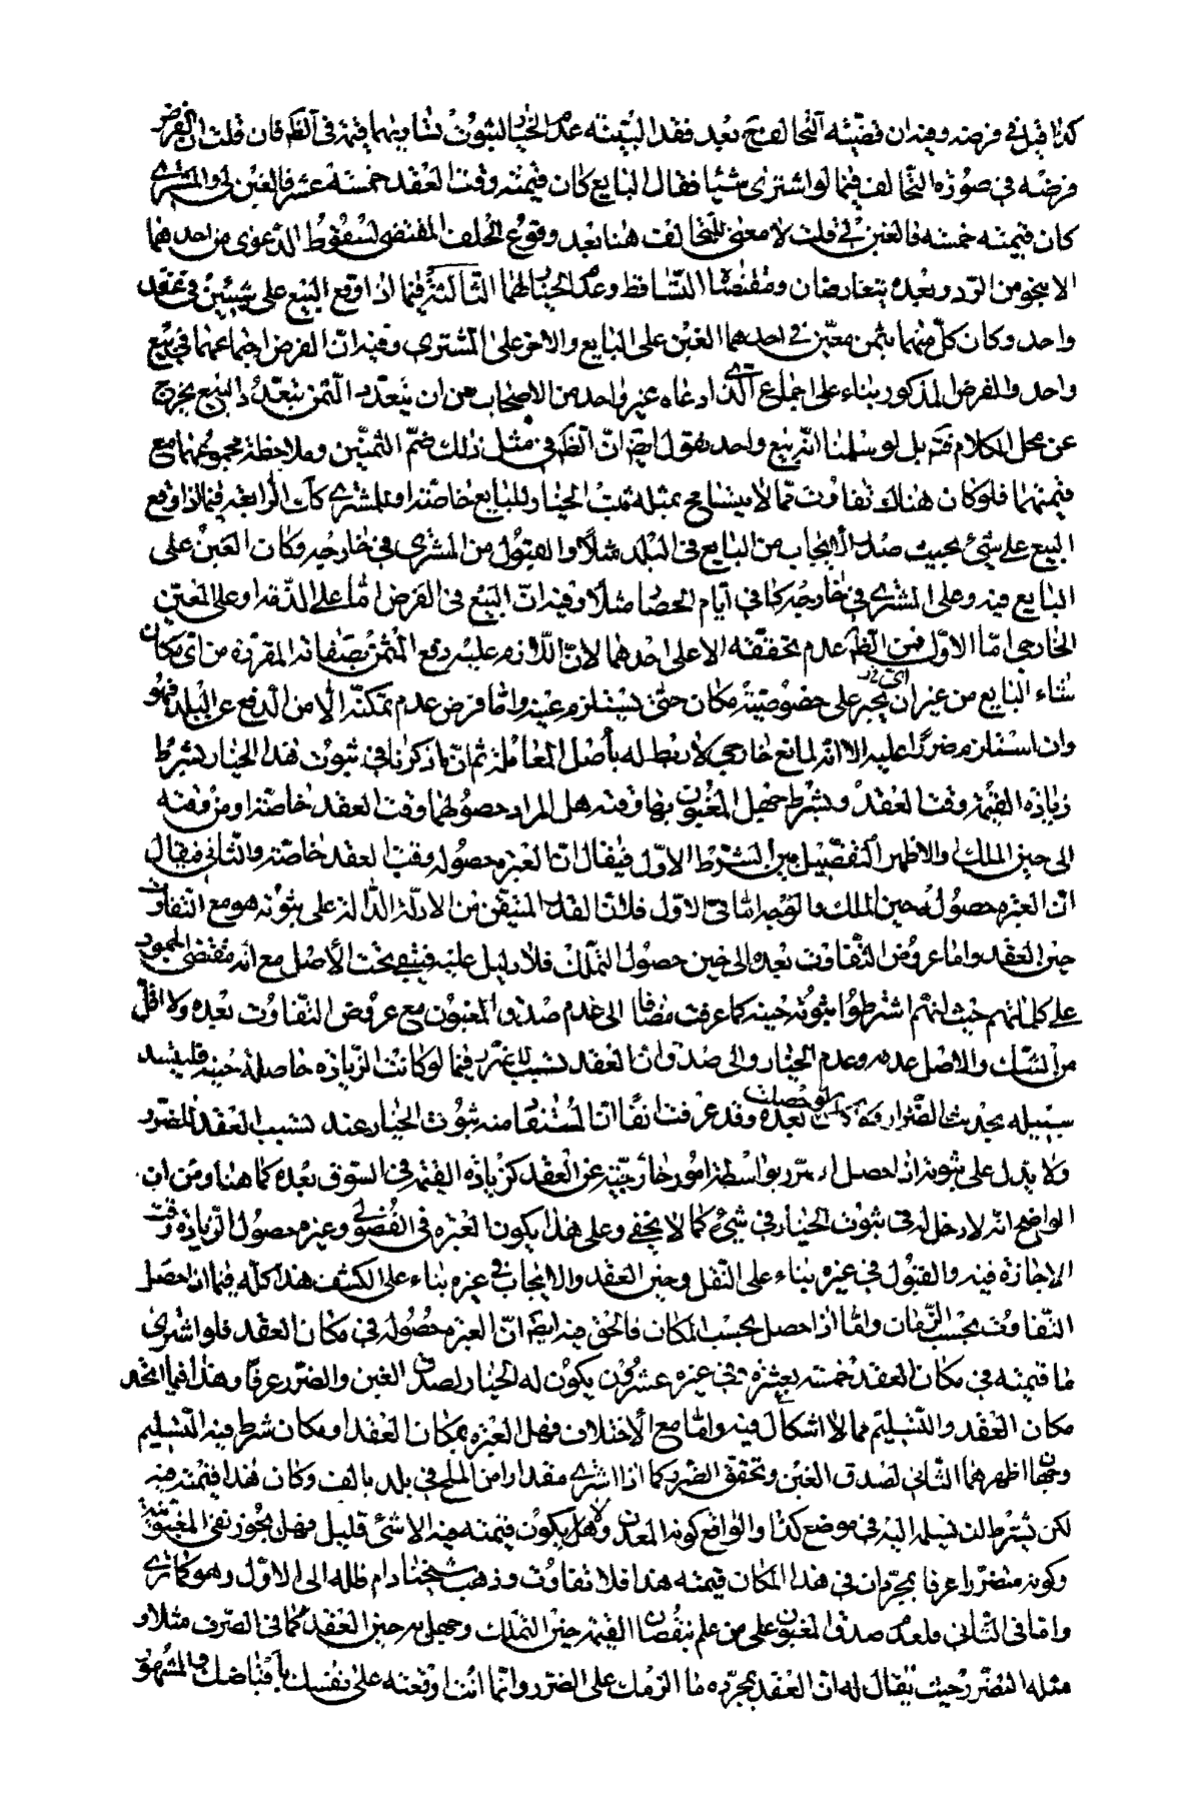 كذا قيل في فرضه وفيه ان قضيته التحالف ح بعد فقد البينة عدم الخيار لثبوت تساويهما فيه في الظ فان قلت ان الفرض
فرضه في صورة التحالف فيما لو اشترى شيئا فقال البايع كان قيمته وقت العقد خمسة عشر فالغبن لي والمشتري
كان قيمته خمسة فالغبن لي قلت لا معنى للتحالف هنا بعد وقوع الحلف المقتضي لسقوط الدعوى من احدهما
الا بنحو من الرد وبعده يتعارضان ومقتضاه التساقط وعدم الخيار لهما الثالثة فيما اذا وقع البيع على شيئين في عقد
واحد وكان كل منهما بثمن معين في احدهما الغبن على البايع والاخر على المشتري وفيه ان الفرض اجتماعهما في بيع
واحد والمفروض المذكور بناء على اجماع الذي ادعاه غير واحد من الاصحاب من ان يتعدد الثمن بتعدد البيع يخرج
عن محل الكلام فتم بل لو سلمنا انه بيع واحد نقول ايضا ان الظ في مثل ذلك ضم الثمنين وملاحظة مجموعهما مع
قيمتهما فلو كان هناك تفاوت مما لا يتسامح بمثله ثبت الخيار وللبايع خاصة او للمشتري كك الرابعة فيما اذا وقع
البيع على شيئ بحيث صدر الايجاب من البايع في البلد مثلا والقبول من المشتري في خارجه وكان الغبن على
البايع فيه وعلى المشتري في خارجه كما في ايام الحصار مثلا وفيه ان البيع في الفرض اما على الذمة او على المعين
الخارجي اما الاول فمن الظ عدم تحققه الا على احدهما لان اللازم عليه دفع المثمن بصفاته المقررة من اي مكان
شاء البايع من غير ان يجبر على خصوصية مكان حتى يستلزم عينه واما فرض عدم تمكنه الا من الدفع عن البلد فهو
وان استلزم ضررا عليه الا انه لمانع خارجي لا ربط له بأصل المعاملة ثم ان ما ذكرناه في ثبوت هذا الخيار بشرط
زيادة القيمة وقت العقد وبشرط جهل المغبون بها وقته هل المراد حصولهما وقت العقد خاصة او من وقته
الى حين الملك والاظهر التفصيل بين الشرط الاول فيقال ان العبرة حصوله وقت العقد خاصة والثاني فيقال
ان العبرة حصوله حين الملك والوجه اما في الاول فلان القدر المتيقن من الادلة الدالة على ثبوته هو مع التفاوت
حين العقد واما عروض التفاوت بعده الى حين حصول التملك فلا دليل عليه فيبقى تحت الأصل مع انه مقتضى الجمود
على كلماتهم حيث انهم اشترطوا ثبوته حينه كما عرفت مضافا الى عدم صدق المغبون مع عروض التفاوت بعده ولا اقل
من الشك والاصل عدمه وعدم الخيار والى صدق ان العقد تسبب لضرر فيما لو كانت الزيادة حاصلة حينه فليشد
سبيله بحديث الضرار لو حصلت بعده وقد عرفت انفا ان المستفاد منه ثبوت الخيار عند تسبب العقد للضرر
ولا يدل على ثبوته اذا حصل الضرر بواسطة امور خارجية عن العقد كزيادة القيمة في السوق بعده كما هنا ومن ان
الواضح انه لا دخل له في ثبوت الخيار في شيئ كما لا يخفى وعلى هذا يكون العبرة في الفضولي وغيره حصول الزيادة وقت
الاجازة فيه والقبول في غيره بناء على النقل وحين العقد والايجاب في غيره بناء على الكشف هذا كله فيما اذا حصل
التفاوت بحسب الزمان واما اذا حصل بحسب المكان فالحق فيه ايضا ان العبرة حصوله في مكان العقد فلو اشترى
ما قيمته في مكان العقد خمسة بعشرة وفي غيره عشرون يكون له الخيار لصدق الغبن والضرر عرفا وهذا فيما اتحد
مكان العقد والتسليم مما لا اشكال فيه واما مع الاختلاف فهل العبرة بمكان العقد او مكان شرط فيه التسليم
وجهان اظهرهما الثاني لصدق الغبن وتحقق الضرر كما اذا اشترى مقدارا من الملح في بلد بالف وكان هذا قيمته فيه
لكن بشرط ان يسلمه اليه في موضع كذا والواقع كونه المعدن ولا يكون قيمته فيه الا شئ قليل فهل يجوز نفي المغبونية
وكونه متضررا عرفا بمجرد ان في هذا المكان قيمته هذا فلا تفاوت وذهب شيخنا دام ظله الى الاول وهو كما ترى
واما في الثاني فلعدم صدق المغبون على من علم بنقصان القيمة حين التملك وجهل به حين العقد كما في الصرف مثلا و
مثله التضرر حيث يقال له ان العقد بمجرده ما الزمك على الضرر وانما انت اوقعته على نفسك باقباضك والمشهور